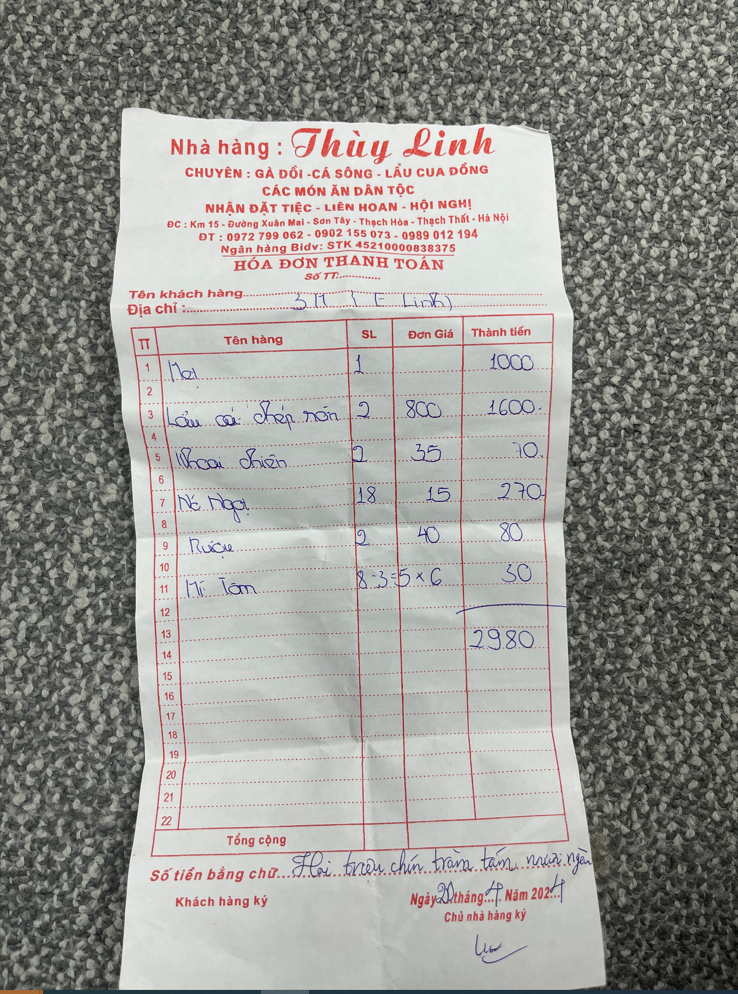 Nhà hàng : Thùy Linh
CHUYÊN : GÀ ĐỒI -CÁ SÔNG - LẨU CUA ĐỒNG
CÁC MÓN ĂN DÂN TỘC
NHẬN ĐẶT TIỆC - LIÊN HOAN - HỘI NGHỊ
ĐC : Km 15 - Đường Xuân Mai - Sơn Tây - Thạch Hòa - Thạch Thất - Hà Nội
ĐT : 0972 799 062 - 0902 155 073 - 0989 012 194
Ngân hàng Bidv: STK 45210000838375
HÓA ĐƠN THANH TOÁN
Số TT:
Tên khách hàng
Địa chỉ : Linh)
TT Tên hàng SL Đơn Giá Thành tiền
1 1 1000
2
3 Lẩu cá chép 2 800 1600
4
5 Khoai chiên 2 35 70
6
7 18 15 270
8
9 Rượu 2 40 80
10
11 Mì Tôm 8-3=5 × 6 30
12
13 2980
14
15
16
17
18
19
20
21
22
Tổng cộng
Số tiền bằng chữ Hai triệu chín trăm tám mươi ngàn
Khách hàng ký Ngày 20 tháng 4 Năm 2024
Chủ nhà hàng ký